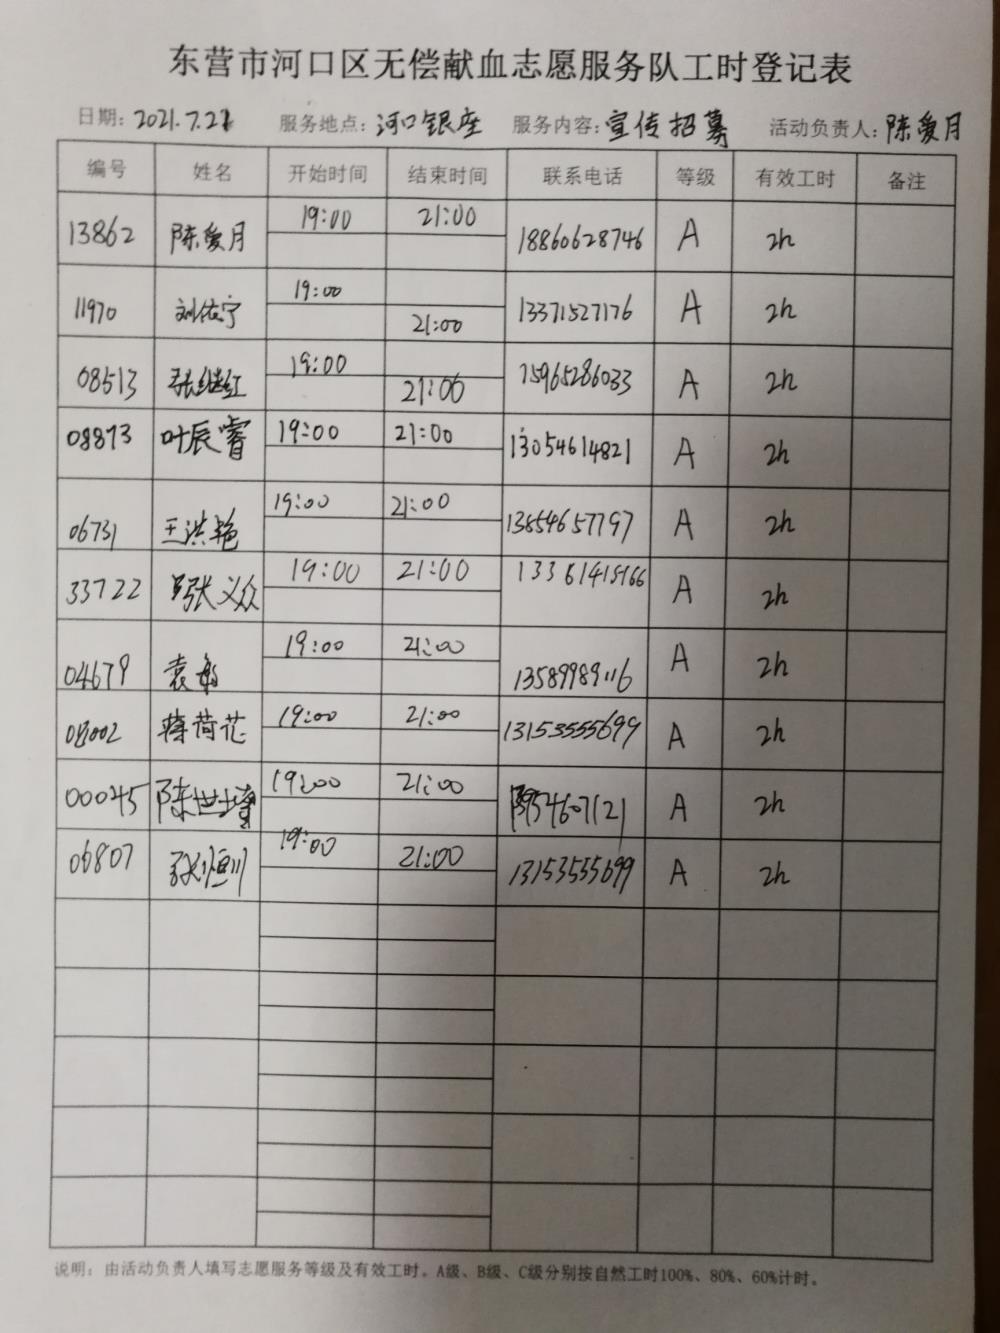 东营市河口区无偿献血志愿服务队工时登记表
日期：2021.7.21 服务地点：河口银座 服务内容：宣传招募 活动负责人：陈爱月
编号 姓名 开始时间 结束时间 联系电话 等级 有效工时 备注
13862 陈爱月 19:00 21:00 18860628746 A 2h
11970 刘佑宁 19:00 21:00 13371527176 A 2h
08513 张继红 19:00 21:00 15965286033 A 2h
08873 叶辰睿 19:00 21:00 13054614821 A 2h
06731 王洪艳 19:00 21:00 13854657797 A 2h
33722 张义众 19:00 21:00 A 2h
04679 袁敏 19:00 21:00 13589989116 A 2h
荷花 19:00 21:00 13153555699 A 2h
00045 陈世 19:00 21:00 A 2h
06807 张恒川 19:00 21:00 13153555699 A 2h
说明：由活动负责人填写志愿服务等级及有效工时。A级、B级、C级分别按自然工时100%、80%、60%计时。